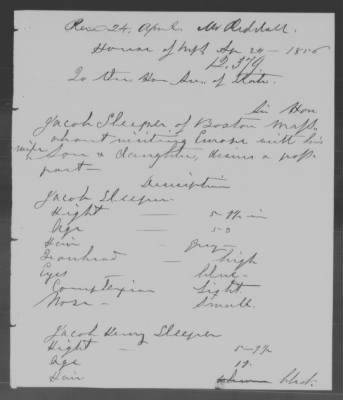 Rec 24, April. Mr Riddall.
House of Repts Apr 24 - 1856
12,379
To the Hon Sec. of State.
Sir Hon
Jacob Sleeper of Boston Mass.
about visiting Europe with his
wife Son & daughter, desires a pass
port -
Description
Jacob Sleeper.
Hight 5-9½ in
Age 53
Hair grey-
Forehead high
Eyes blue-
Complexion Light
Nose - Small.
Jacob Henry Sleeper
Hight - 5-9½
Age 19.
Hair blk.